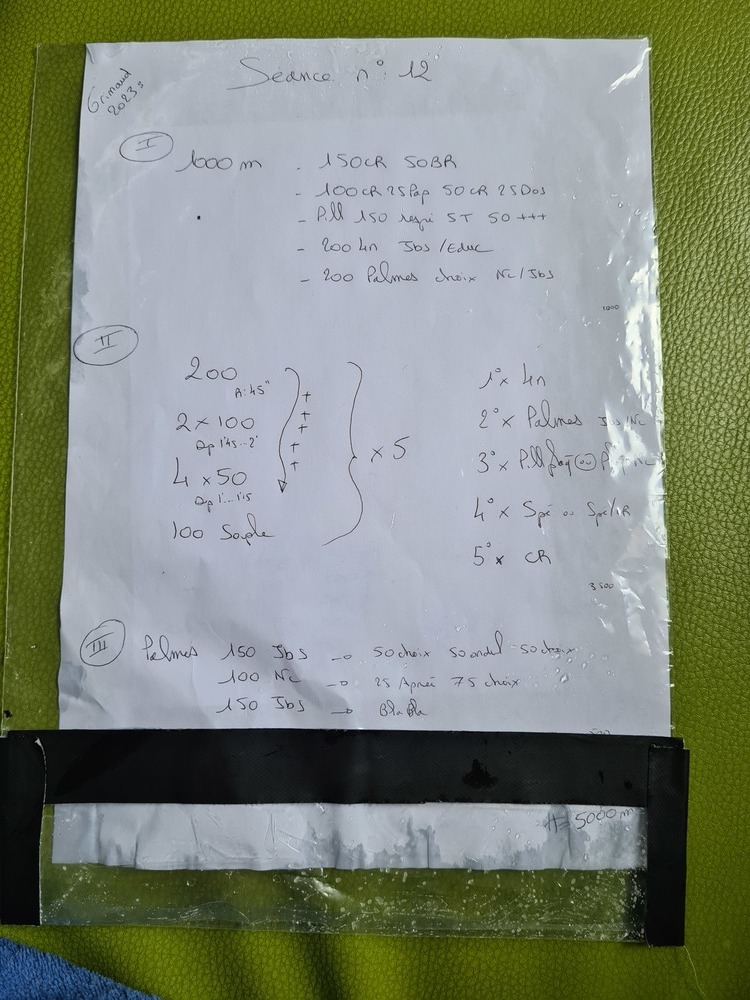 Grimaud
2023
Séance n°: 12
I
1000 m - 150CR 50BR
- 100CR 25Pap 50CR 25Dos
- Pull 150 respi 5T 50 +++
- 200 4n Jbs/Educ
- 200 Palmes choix Nc/Jbs
1000
II
200
R:45"
2 x 100
Dep 1'45...2'
4 x 50
Dep 1'...1'15
100 Souple
+
+
+
+
+
x 5
1° x 4n
2° x Palmes Jbs/Nc
3° x Pull plaq ou
4° x Spé ou Spé/CR
5° x CR
3500
III
Palmes 150 Jbs → 50 choix 50 ondul 50 choix
100 Nc → 25 Apnée 75 choix
150 Jbs → BlaBla
500
T = 5000 m